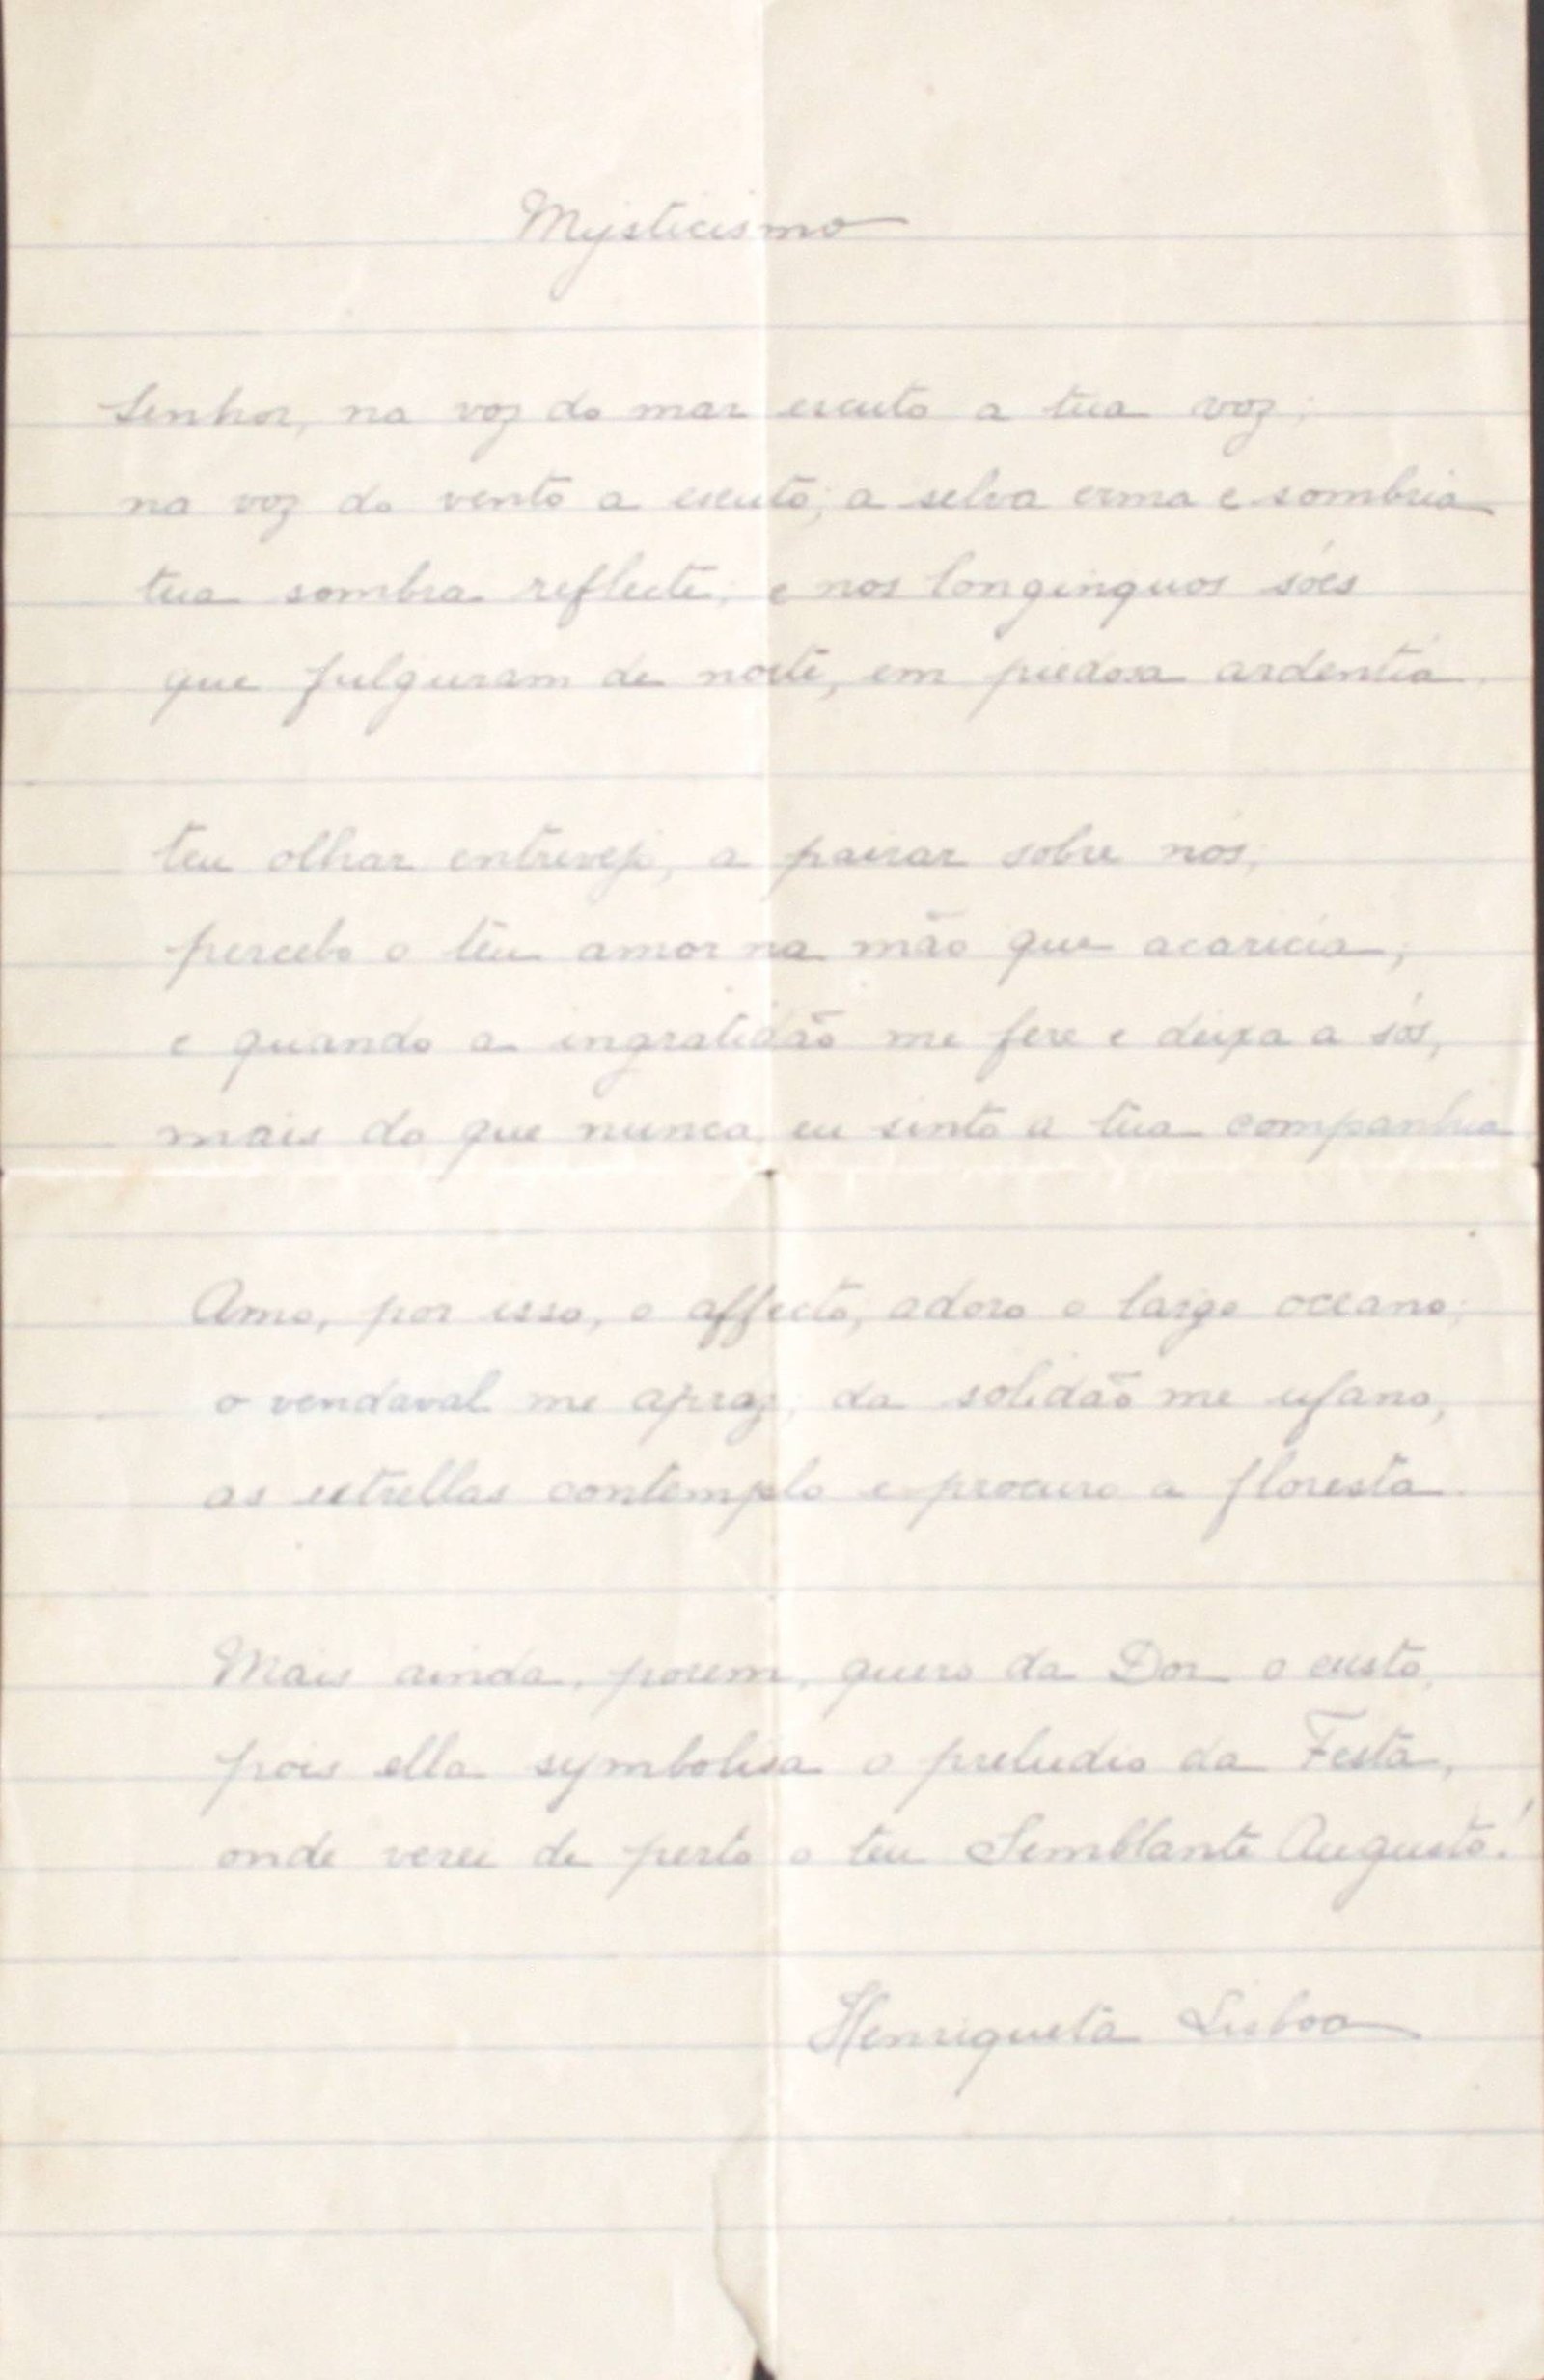 Mysticismo
Senhor, na voz do mar escuto a tua voz;
na voz do vento a escuto; a selva erma e sombria
tua sombra reflecte; e nos longinquos sóes
que fulguram de noite, em piedosa ardentia
teu olhar entrevejo, a pairar sobre nós;
percebo o teu amor na mão que acaricia;
e quando a ingratidão me fere e deixa a sós,
mais do que nunca eu sinto a tua companhia
Amo, por isso, o affecto; adoro o largo oceano;
o vendaval me apraz; da solidão me ufano,
as estrellas contemplo e procuro a floresta.
Mais ainda, porem, quero da Dor o custo,
pois ella symbolisa o preludio da Festa,
onde verei de perto o teu Semblante Augusto!
Henriqueta Lisboa